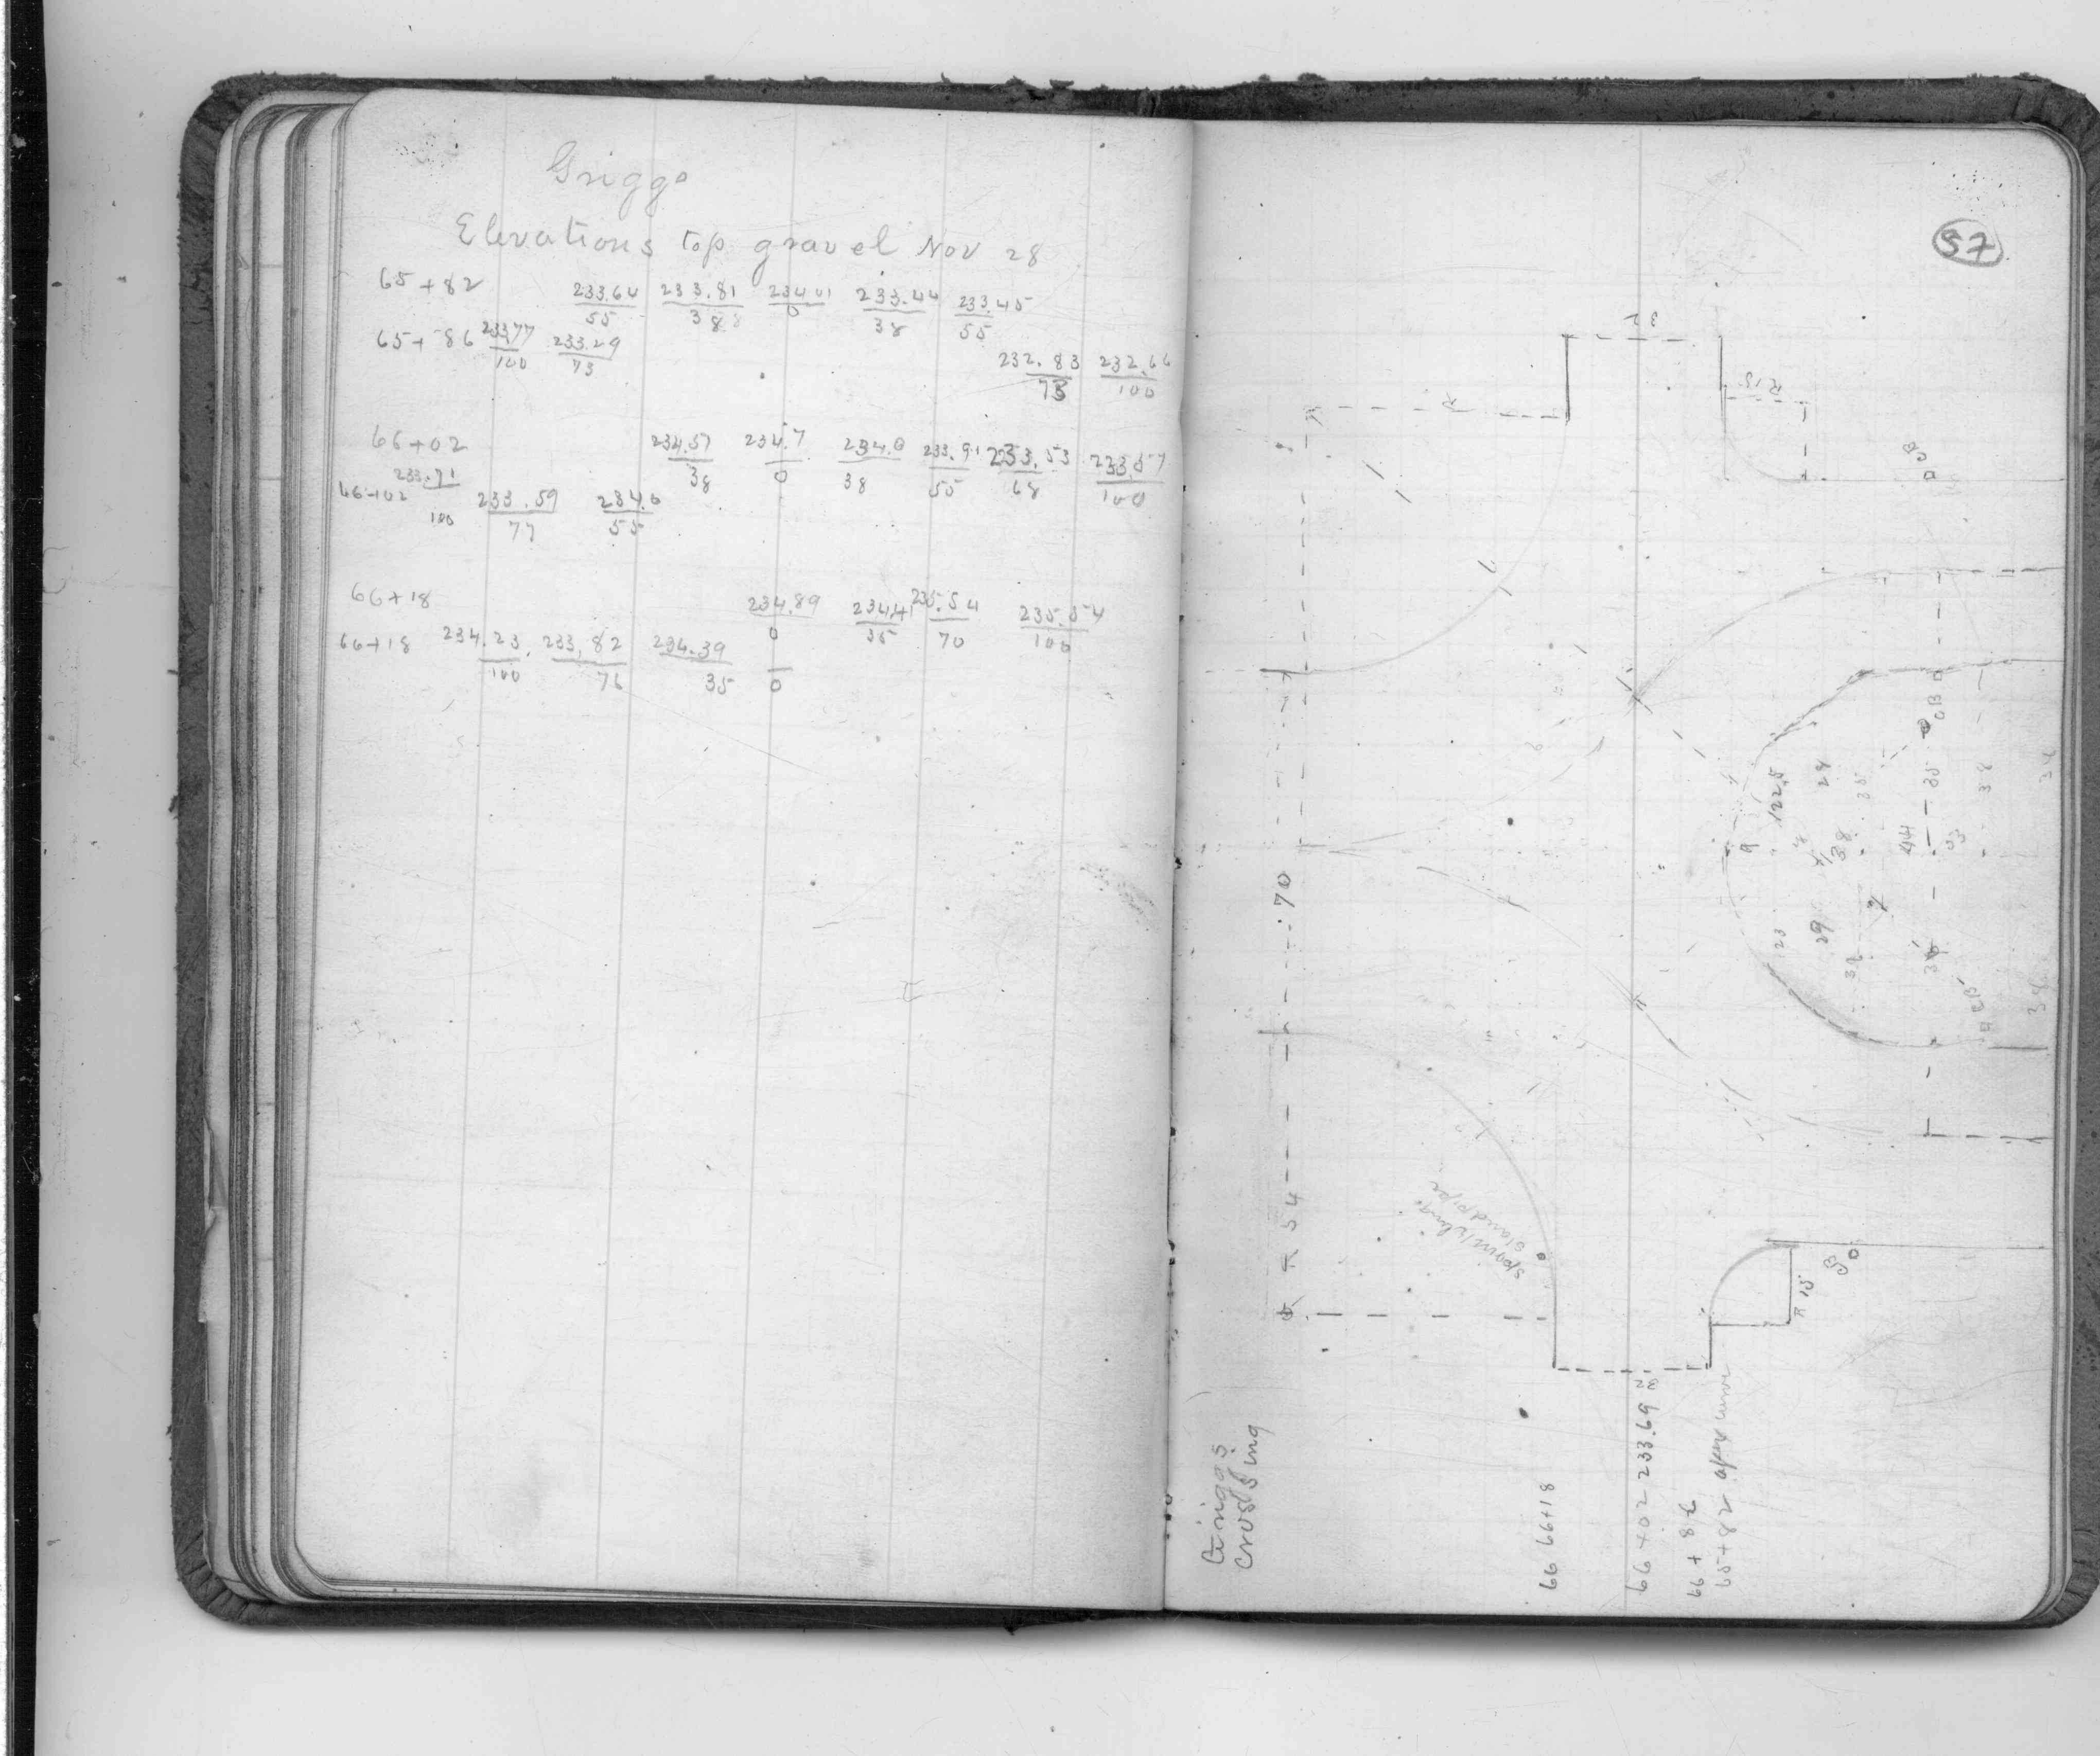 Griggs
Elevations top gravel Nov 28
65+82 233.64/55 233.81/38 234.01/0 233.44/38 233.45/55
65+86 233.77/100 233.29/73 232.83/73 232.66/100
66+02 234.57/38 234.7/0 234.0/38 233.91/55 233.53/68 233.57/100
66+02 233.71/100 233.59/77 234.0/55
66+18 234.89/0 234.41/35 235.54/70 235.54/100
66+18 234.23/100 233.82/76 234.39/35 0
57
R15
CB
CB
122.5
28
35
35
38
9
38
44
70
23
29
38
R 54
sprinkling
standpipe
R 15
CB
Griggs
Crossing
66 66+18
66+02 233.69
66+86
65+82 apex curve